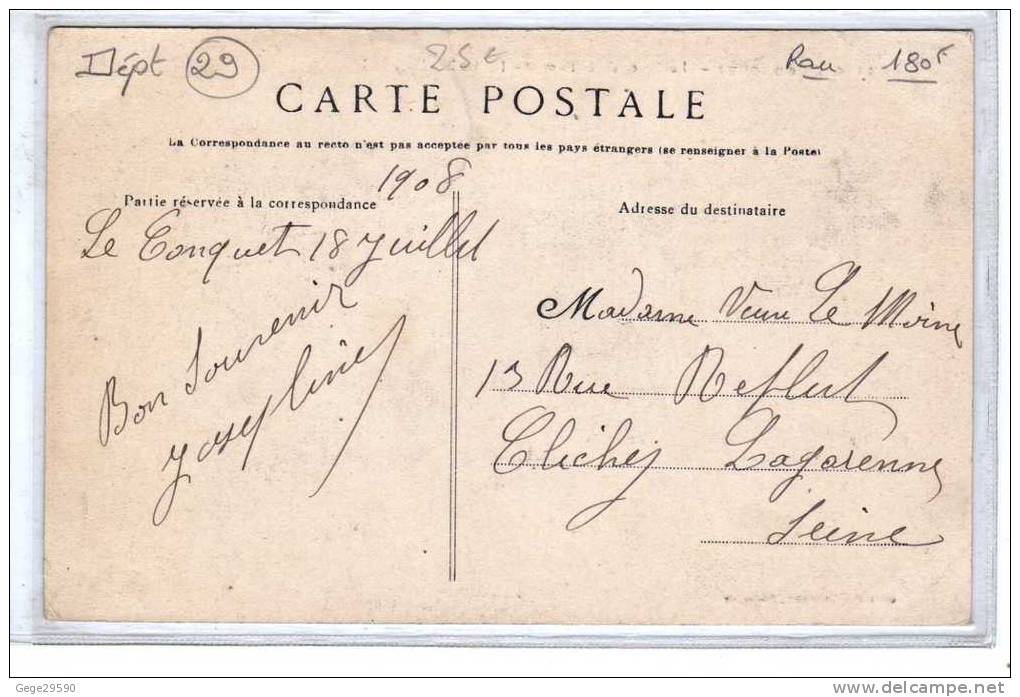 Dépt 29 25 € Rau 180F
CARTE POSTALE
La Correspondance au recto n'est pas acceptée par tous les pays étrangers (se renseigner à la Poste)
1908
Partie réservée à la correspondance
Adresse du destinataire
Le Conquet 18 Juillet
Bon Souvenir
Josephine
Madame Veuve Le Moine
13 Rue
Clichy Lagarenne
Seine
Gege29590
delcampe.net